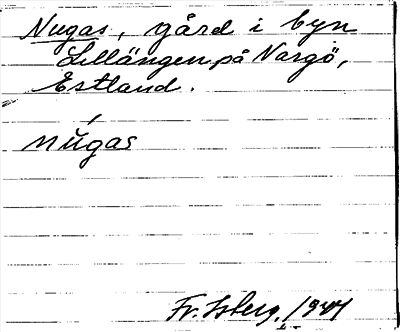 Nugas, gård i byn
Lillängen på Nargö,
Estland.
nŭ́gas
Fr. Isberg, 1941